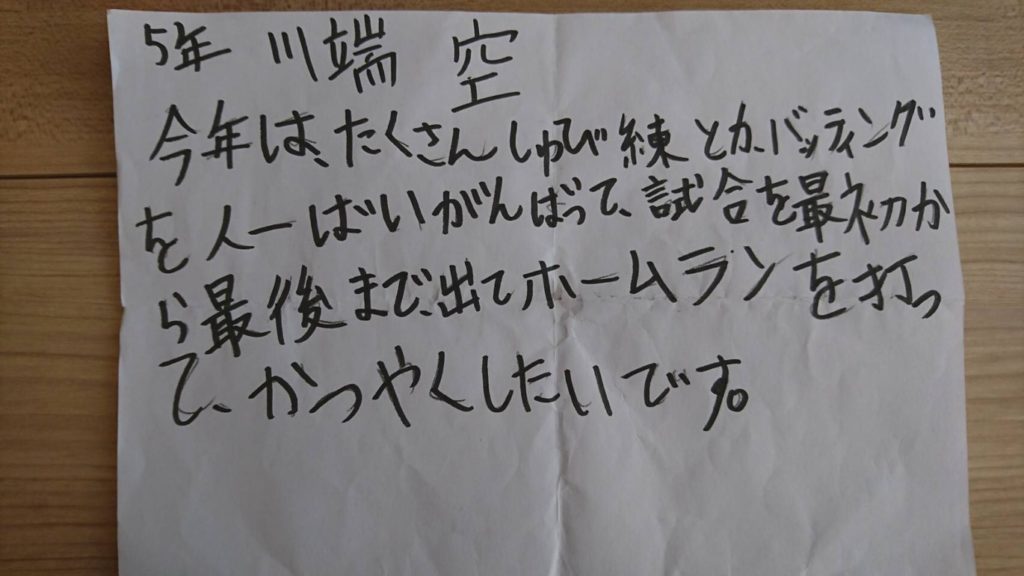 5年 川端 空
今年は、たくさんしゅび練とか、バッティング
を人一ばいがんばって、試合を最初か
ら最後まで、出てホームランを打っ
て、かつやくしたいです。